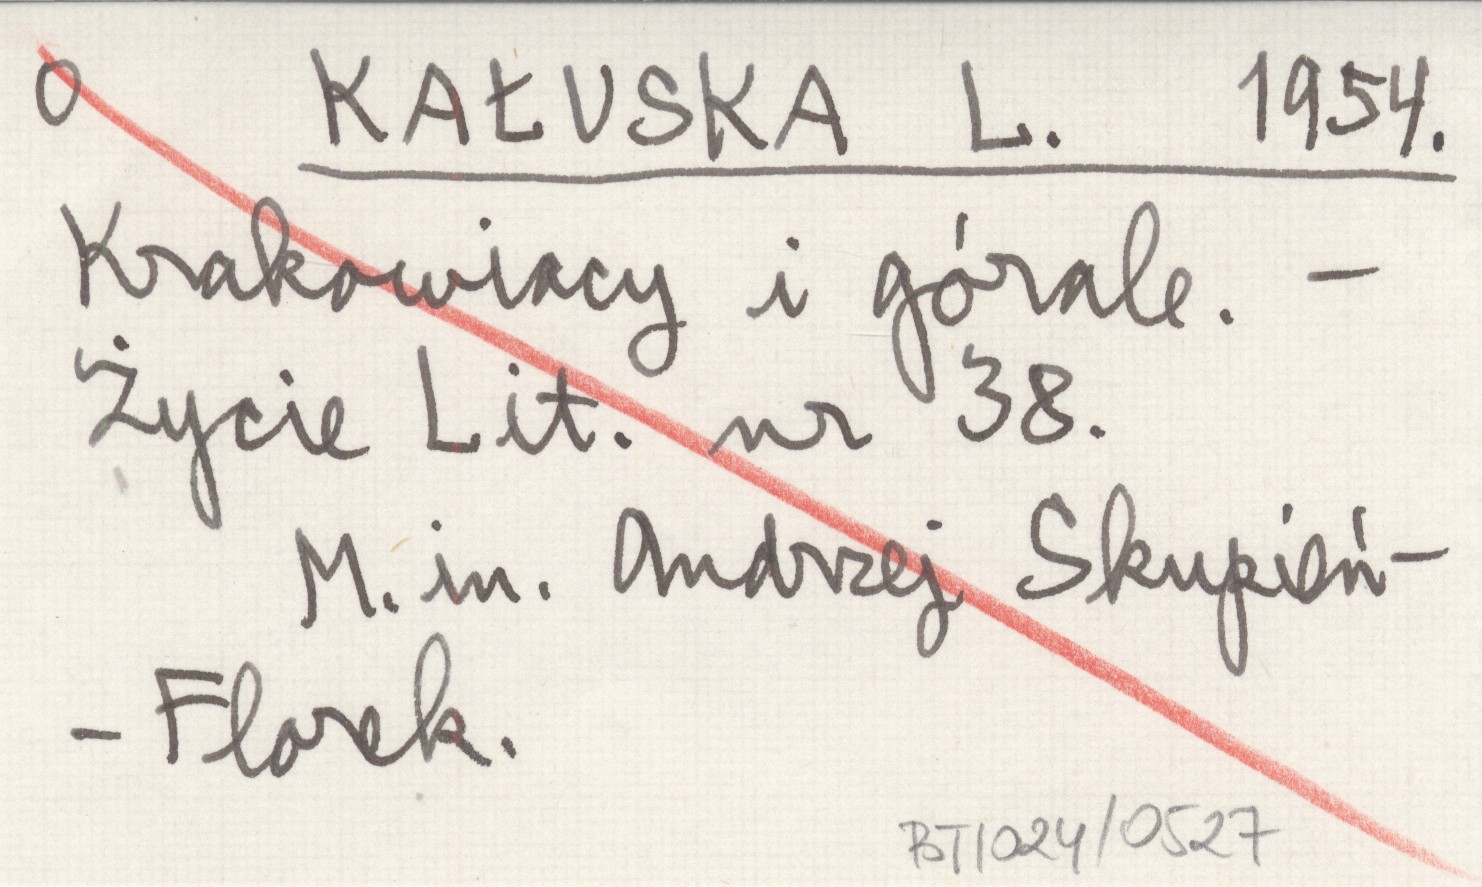 O KAŁUSKA L. 1954.
Krakowiacy i górale. –
Życie Lit. nr 38.
M. in. Andrzej Skupień-
- Florek.
BT/024/0527